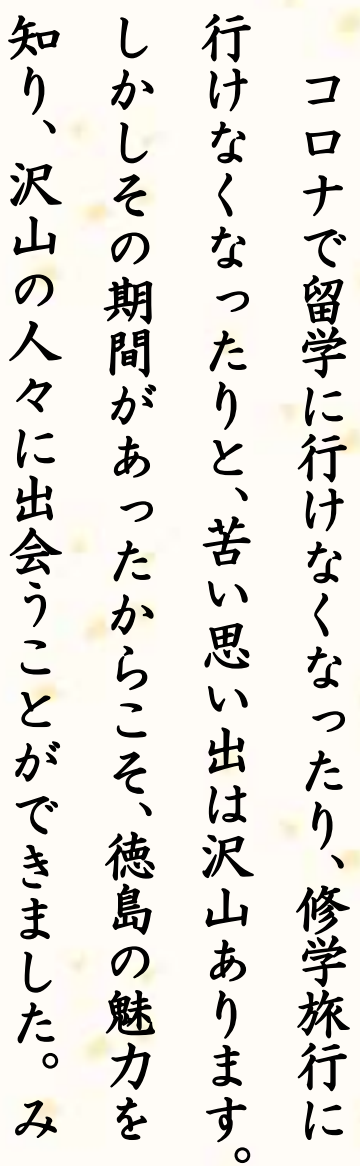 コロナで留学に行けなくなったり、修学旅行に
行けなくなったりと、苦い思い出は沢山あります。
しかしその期間があったからこそ、徳島の魅力を
知り、沢山の人々に出会うことができました。み